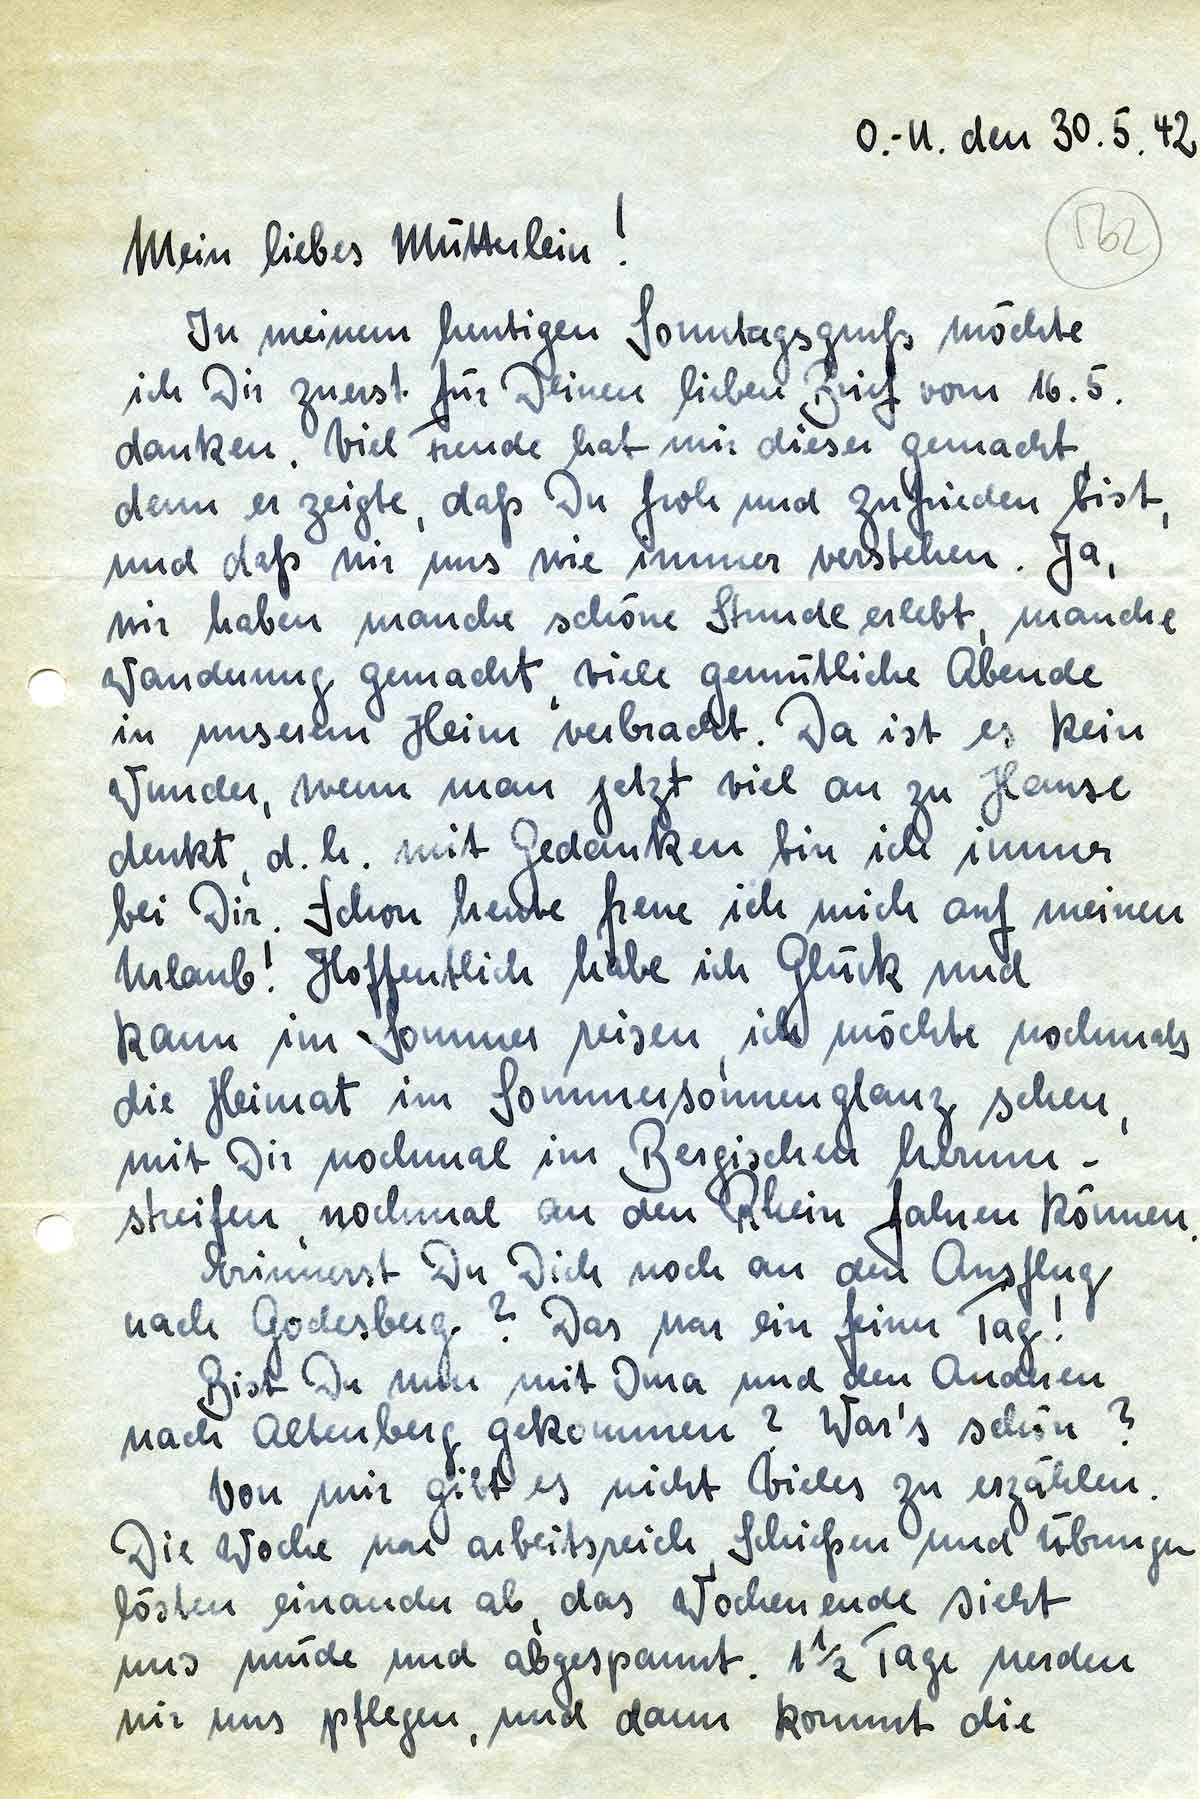 O.-U. den 30.5.42
162
Mein liebes Mütterlein!
In meinem heutigen Sonntagsgruß möchte
ich Dir zuerst für Deinen lieben Brief vom 16.5.
danken. Viel Freude hat mir dieser gemacht,
denn er zeigte, daß Du froh und zufrieden bist,
und daß wir uns wie immer verstehen. Ja,
wir haben manche schöne Stunde erlebt, manche
Wanderung gemacht, viele gemütliche Abende
in unserem Heim verbracht. Da ist es kein
Wunder, wenn man jetzt viel an zu Hause
denkt, d.h. mit Gedanken bin ich immer
bei Dir. Schon heute freue ich mich auf meinen
Urlaub! Hoffentlich habe ich Glück und
kann im Sommer reisen, ich möchte nochmals
die Heimat im Sommersonnenglanz sehen,
mit Dir nochmal im Bergischen herum-
streifen, nochmal an den Rhein fahren können.
Erinnerst Du Dich noch an den Ausflug
nach Godesberg? Das war ein feiner Tag!
Bist Du nun mit Oma und den Anderen
nach Altenberg gekommen? War's schön?
Von mir gibt es nicht Vieles zu erzählen.
Die Woche war arbeitsreich, Schießen und Übungen
lösten einander ab, das Wochenende sieht
uns müde und abgespannt. 1 1/2 Tage werden
wir uns pflegen, und dann kommt die